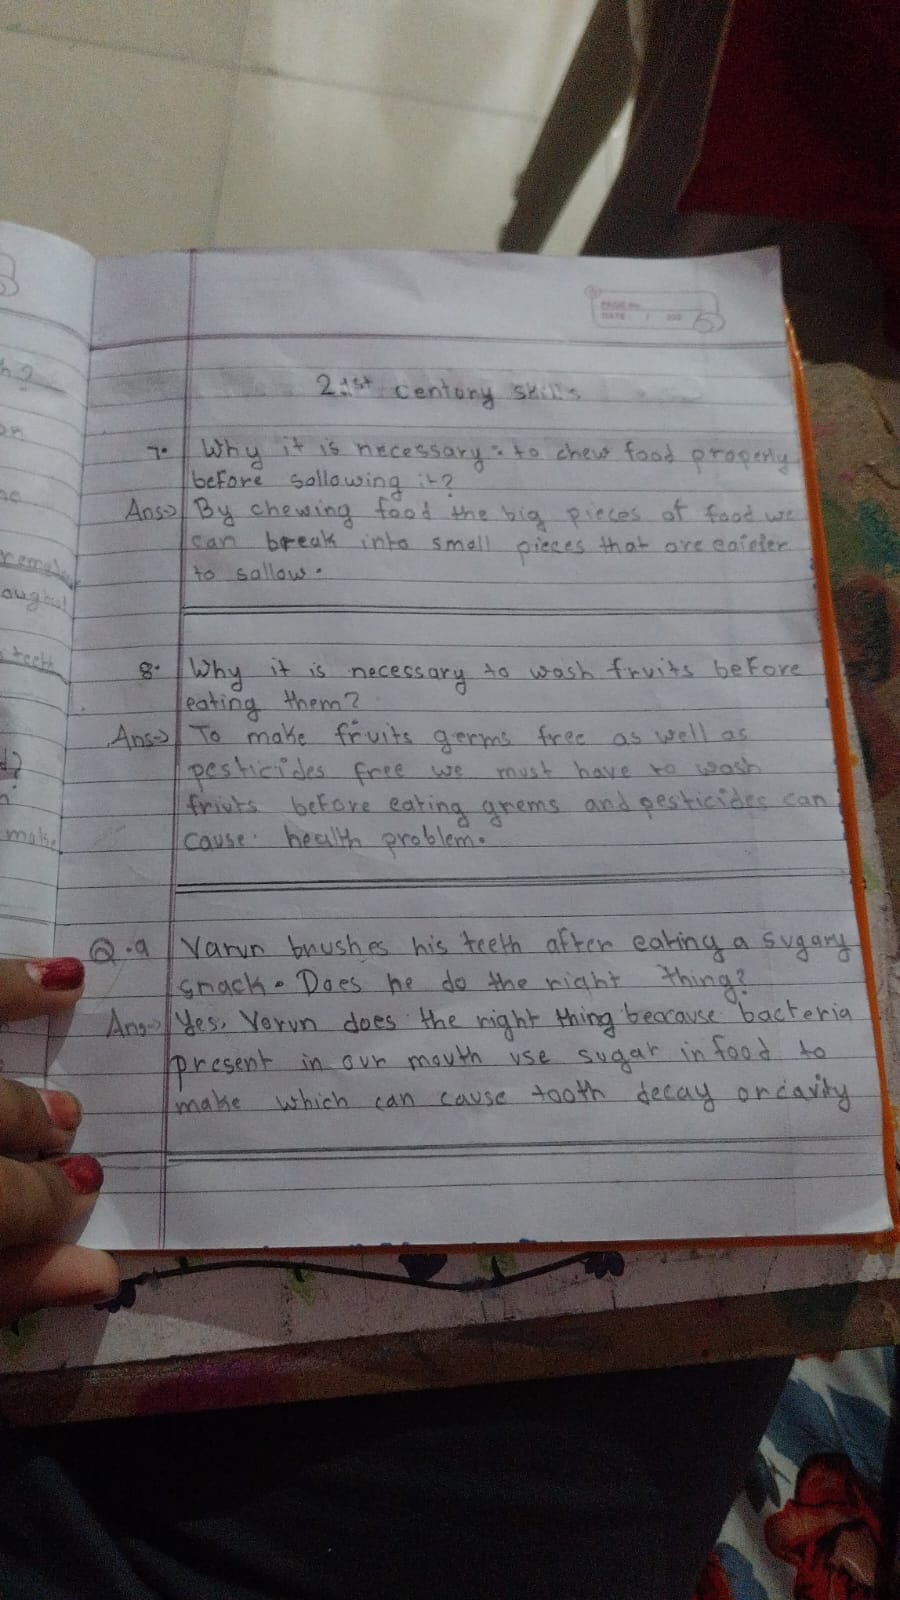 PAGE No.
DATE: / 202
21st Centory Skills
7. Why it is necessary to chew food properly
before sollowing it?
Ans→ By chewing food the big pieces of food we
can break into small pieces that are eaieier
to sallow.
8. Why it is necessary to wash fruits before
eating them?
Ans→ To make fruits germs free as well as
pesticides free we must have to wash
friuts before eating grems and pesticides can
cause health problem.
Q.9 Varun brushes his teeth after eating a sugary
snack. Does he do the right thing?
Ans→ Yes, Varun does the right thing beacause bacteria
present in our mouth use sugar in food to
make which can cause tooth decay or cavity
h?
on
remake
teeth
d?
make